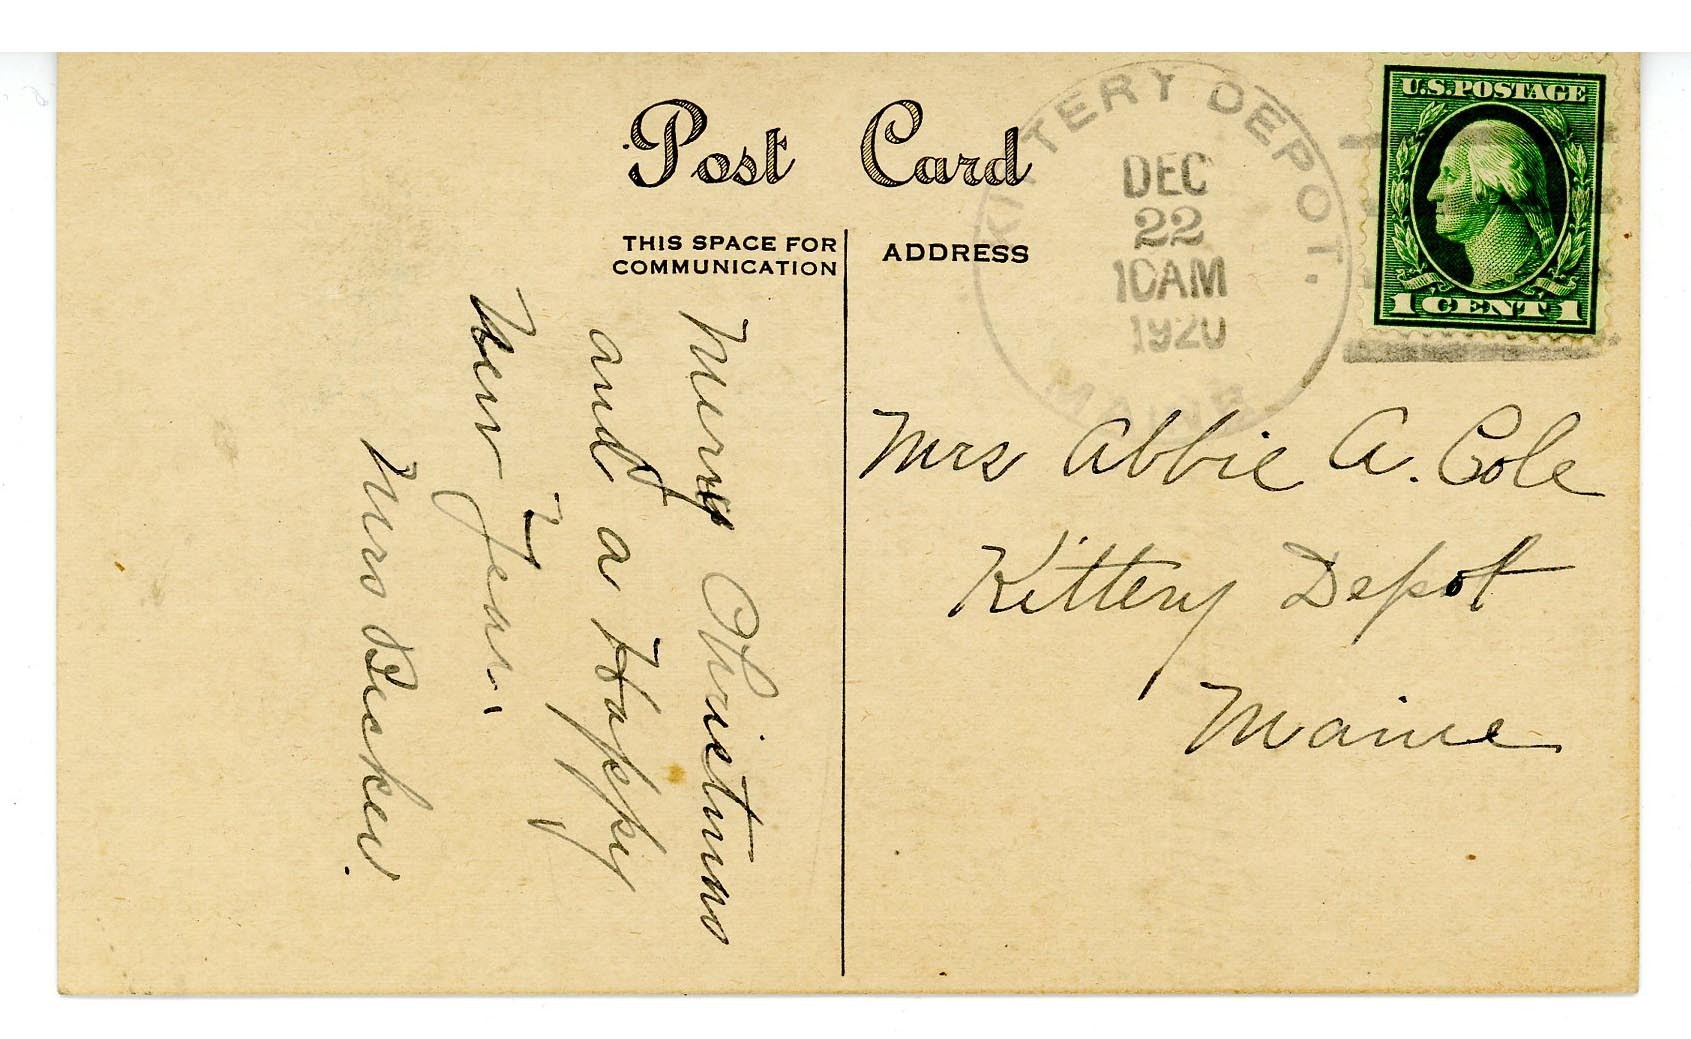 Post Card
THIS SPACE FOR
COMMUNICATION
ADDRESS
KITTERY DEPOT.
DEC
22
10AM
1920
MAINE
U.S. POSTAGE
1 CENT 1
Merry Christmas
and a Happy
New Year."
Mrs
Mrs Abbie A. Cole
Kittery Depot
Maine